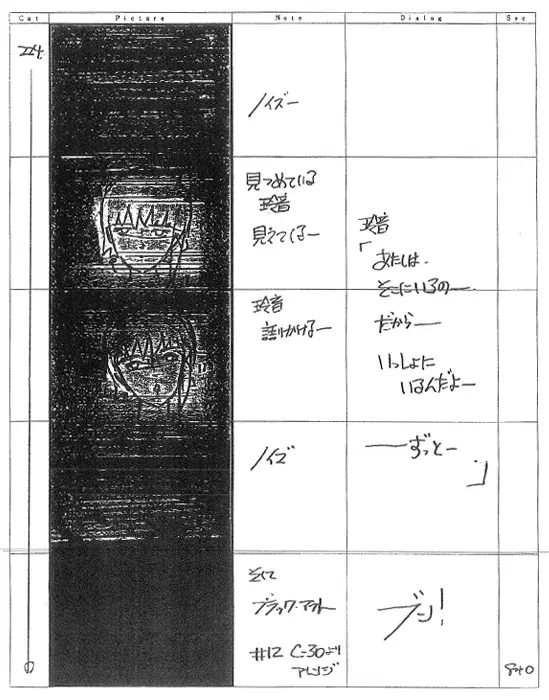 Cut Picture Note Dialog Sec
224
ノイズー
見つめている
玲音
見えてくるー
玲音
「あたしは、
そこにいるの――
玲音
語りかけるー
だから――
いっしょに
いるんだよー
ノイズ
――ずっとー
」
そして
ブラック・アウト
ブン!
#12 C-30より
アレンジ
8+0